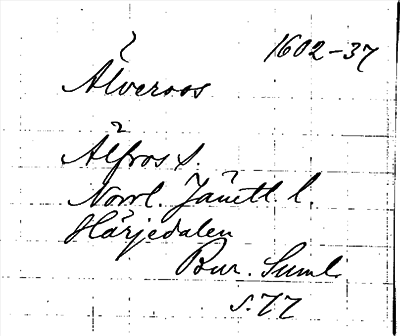 1602-37
Älveroos
Älfros s.
Norrl. Jämtl. l.
Härjedalen
Bur. Suml.
s. 77